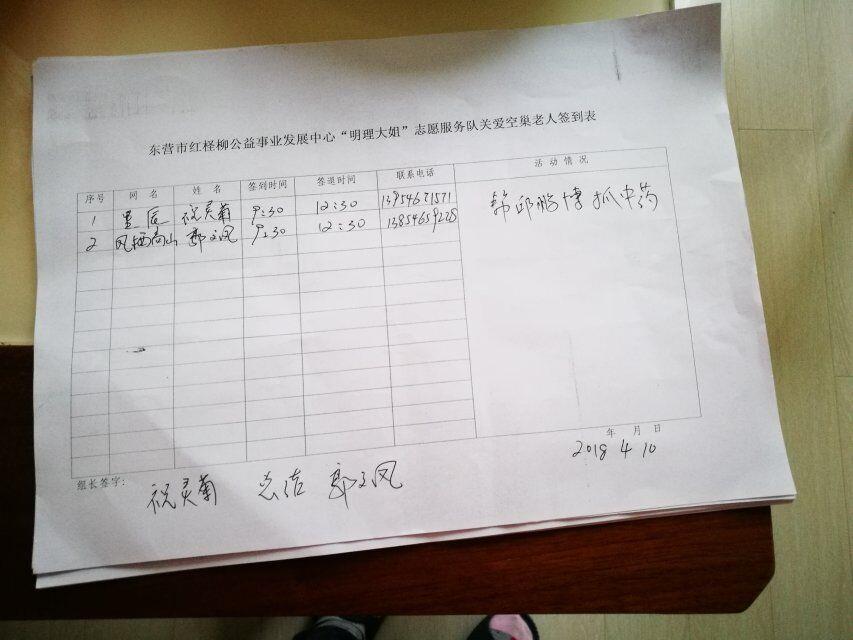 东营市红柽柳公益事业发展中心“明理大姐”志愿服务队关爱空巢老人签到表
序号 网 名 姓 名 签到时间 签退时间 联系电话 活 动 情 况
1 祝灵菊 9:30 12:30 13954671571
2 凤栖高山 郭文凤 9:30 12:30 13854659228
邱鹏博抓中药
年 月 日
2018 4 10
组长签字: 祝灵菊 总结 郭文凤